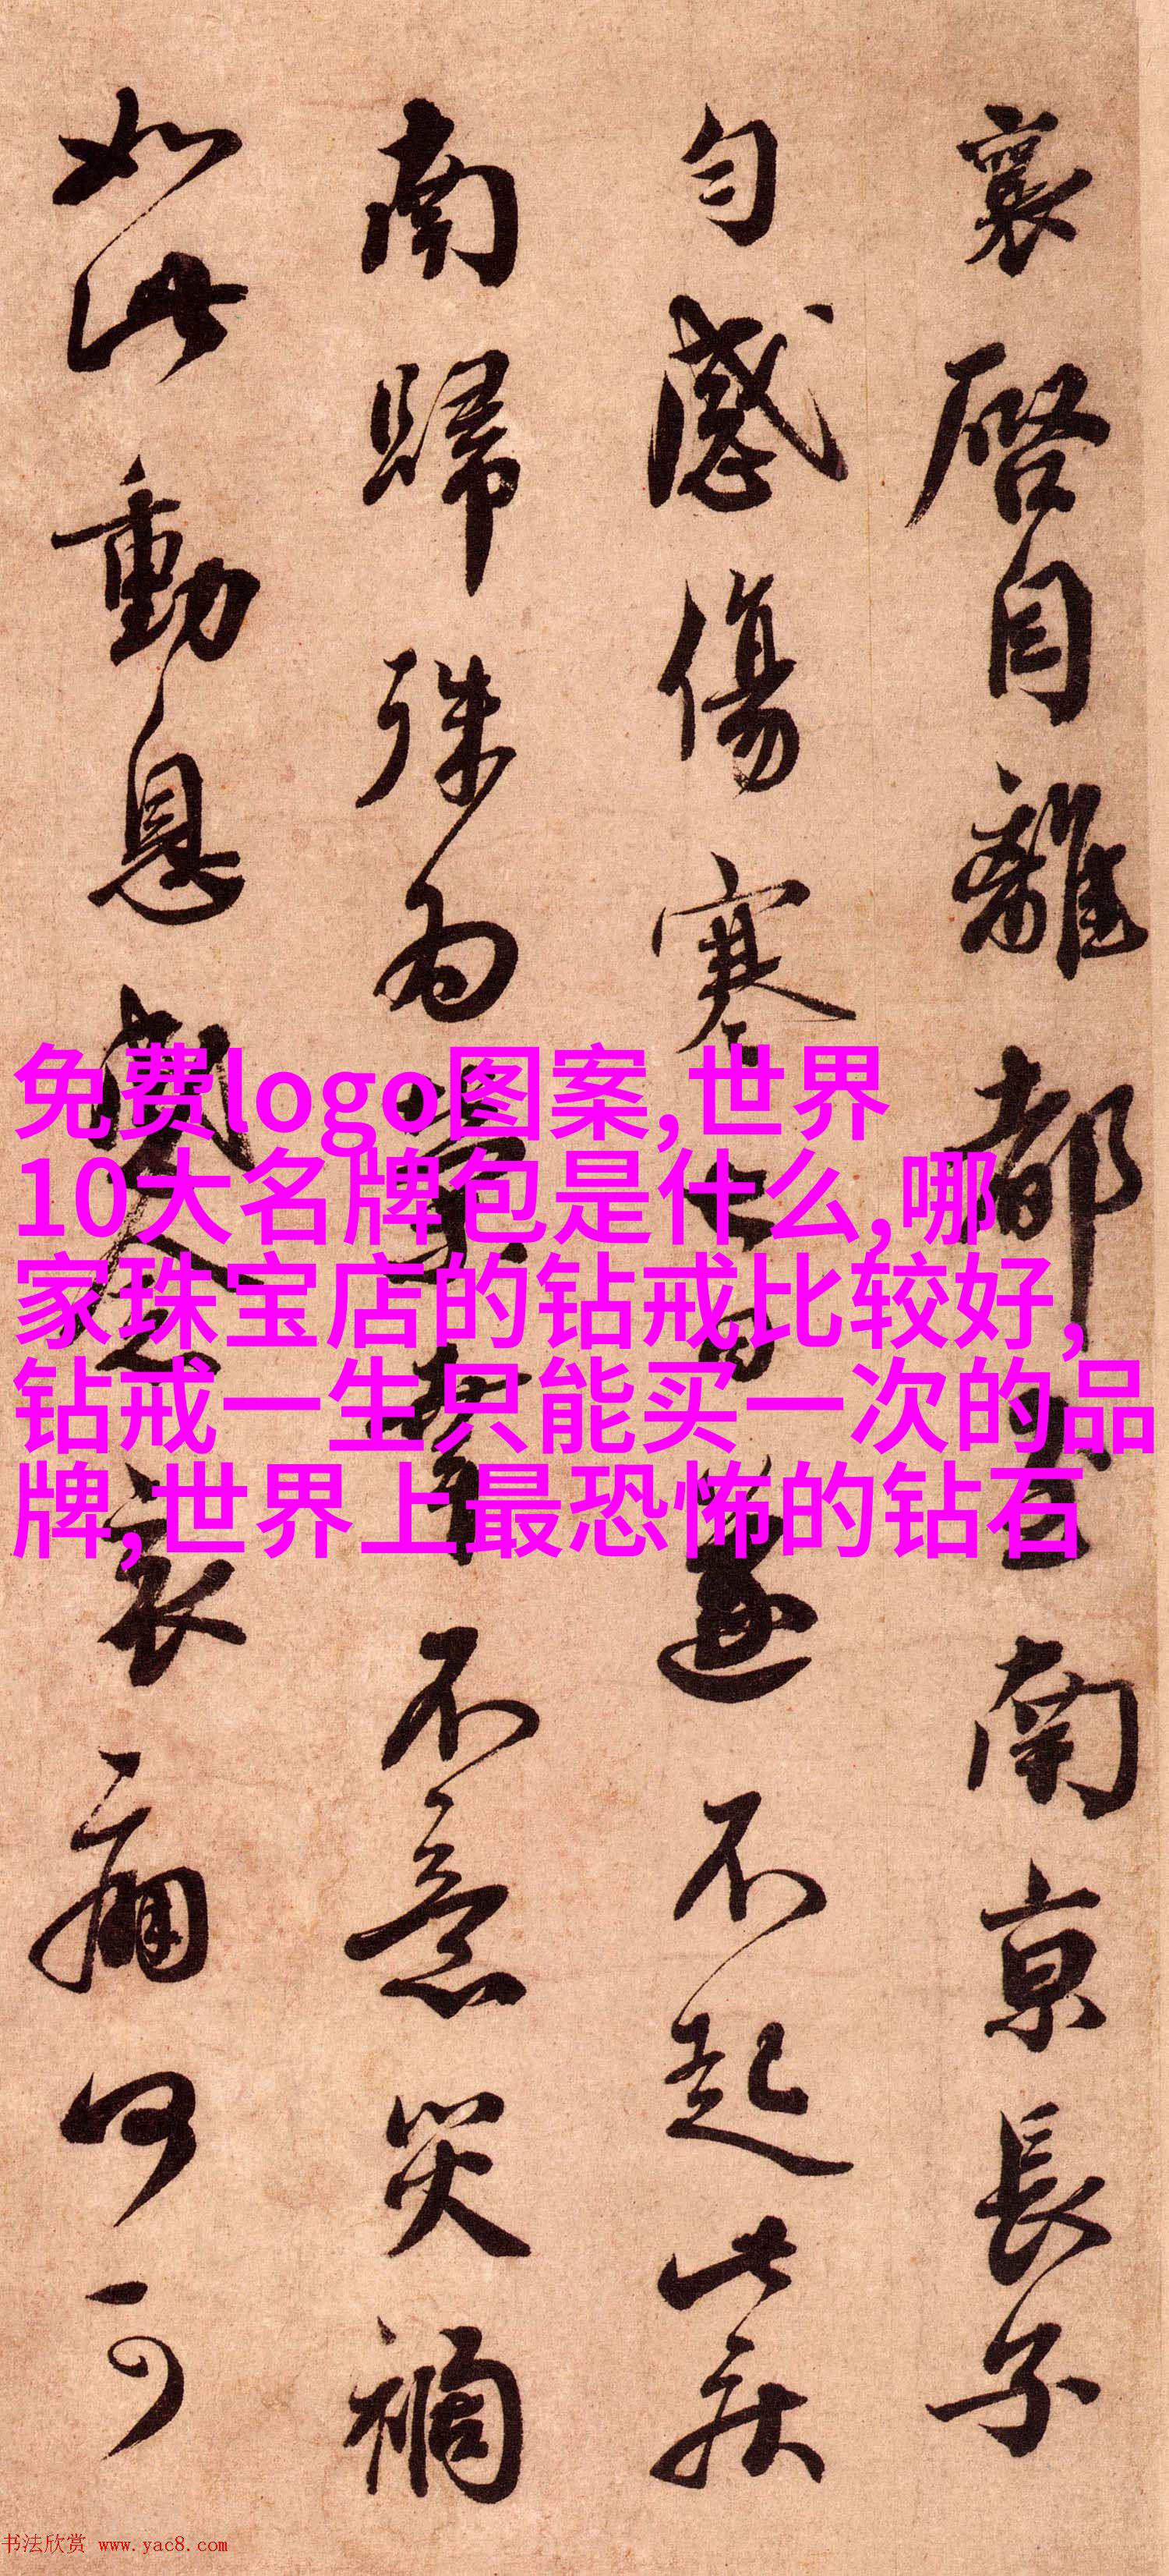 襄啓自離都至南京長子
勻感傷寒七日遂不起此疾
南歸殊為榮幸不意災禍
如此動息念哀痛何可
免费logo图案,世界
10大名牌包是什么,哪
家珠宝店的钻戒比较好,
钻戒一生只能买一次的品
牌,世界上最恐怖的钻石
书法欣赏 www.yac8.com